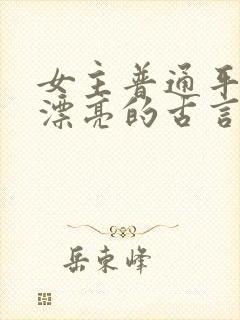 女主普通平
漂亮的古言
岳东峰